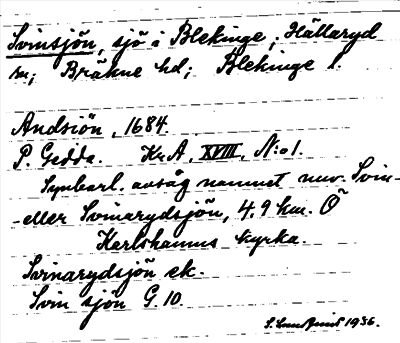 Svinsjön, sjö i Blekinge; Hällaryd
sn; Bräkne hd; Blekinge l.
Andsiön, 1684.
P. Gedda. Kr.A, XVIII, N:o 1.
Synbarl. avsåg namnet nuv. Svin-
-eller Svinarydsjön, 4.9 km. Ö
Karlshamns kyrka.
Svinarydsjön ek.
Svin sjön G. 10.
1936.